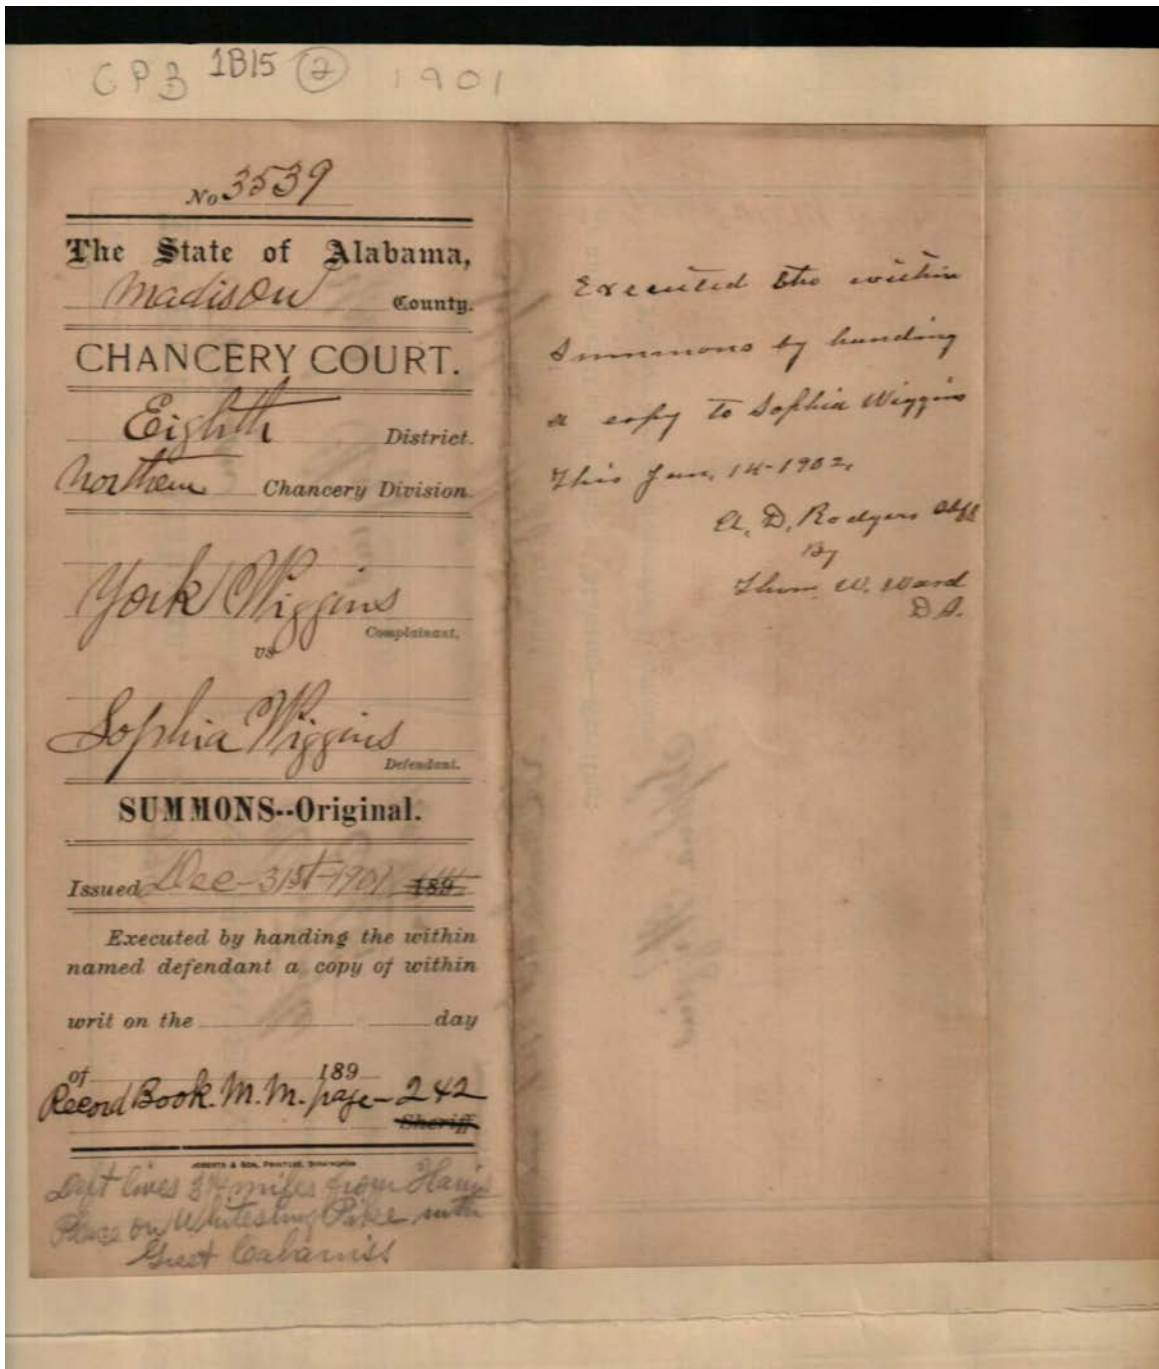 CPB 1B15 2 1901
No 3539
The State of Alabama,
Madison County.
CHANCERY COURT.
Eighth District.
Northern Chancery Division.
York Wiggins
Complainant,
vs
Sophia Wiggins
Defendant.
SUMMONS--Original.
Issued Dec-31st-1901 189
Executed by handing the within
named defendant a copy of within
writ on the day
of 189
Record Book. M. M. page-242
Sheriff.
ROBERTS & SON, PRINTERS, BIRMINGHAM
lives miles from
Place on Pike with
Cabaniss
Executed the within
Summons by handing
a copy to Sophia Wiggins
This Jan, 14-1902,
A. D. Rodgers Shff
By
Thom. W. Ward
D S.